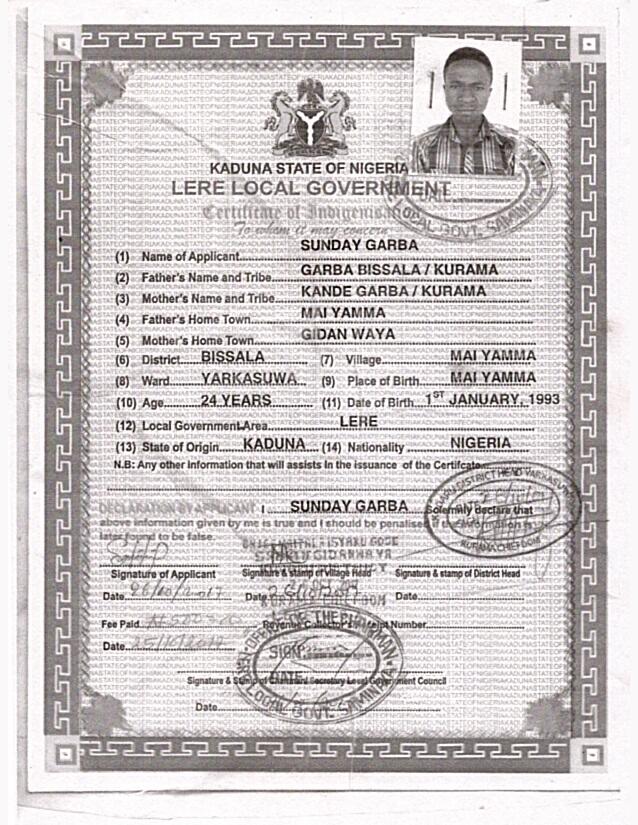 KADUNA STATE OF NIGERIA
LERE LOCAL GOVERNMENT
Certificate of Indigenisation
To whom it may concern
(1) Name of Applicant SUNDAY GARBA
(2) Father's Name and Tribe GARBA BISSALA / KURAMA
(3) Mother's Name and Tribe KANDE GARBA / KURAMA
(4) Father's Home Town MAI YAMMA
(5) Mother's Home Town GIDAN WAYA
(6) District BISSALA (7) Village MAI YAMMA
(8) Ward YARKASUWA (9) Place of Birth MAI YAMMA
(10) Age 24 YEARS (11) Date of Birth 1ST JANUARY, 1993
(12) Local Government Area LERE
(13) State of Origin KADUNA (14) Nationality NIGERIA
N.B: Any other information that will assists in the issuance of the Certifcate
DECLARATION BY APPLICANT I SUNDAY GARBA Solemnly declare that
above information given by me is true and I should be penalised if the information is
later found to be false.
Signature of Applicant Signature & stamp of Village Head Signature & stamp of District Head
Date Date Date
Fee Paid Revenue Collector's Receipt Number
Date
Signature & Stamp of Chairman/ Secretary Local Government Council
Date
KURAMA CHIEFDOM
SIGN
DATE
LOCAL GOVT. SAMINAKA